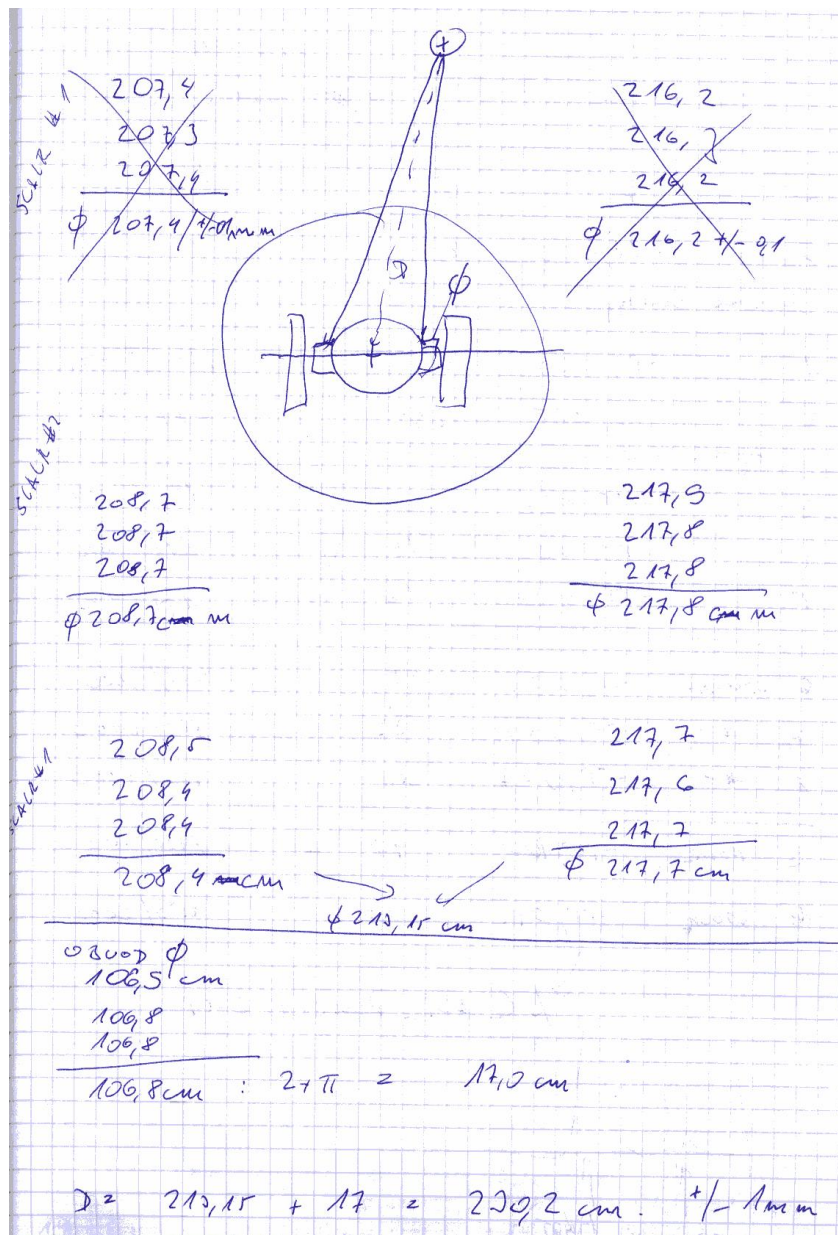 SCALR #1
207,4
207,3
207,4
φ 207,4 +/-0,1mm
216,2
216,2
216,2
φ 216,2 +/- 0,1
D
φ
SCALR #2
208,7
208,7
208,7
φ 208,7 cm
217,9
217,8
217,8
φ 217,8 cm
SCALR #1
208,5
208,4
208,4
208,4 cm
217,7
217,6
217,7
φ 217,7 cm
φ 213,15 cm
OBVOD φ
106,9 cm
106,8
106,8
106,8 cm : 2*π = 17,0 cm
D = 213,15 + 17 = 230,2 cm. +/- 1mm